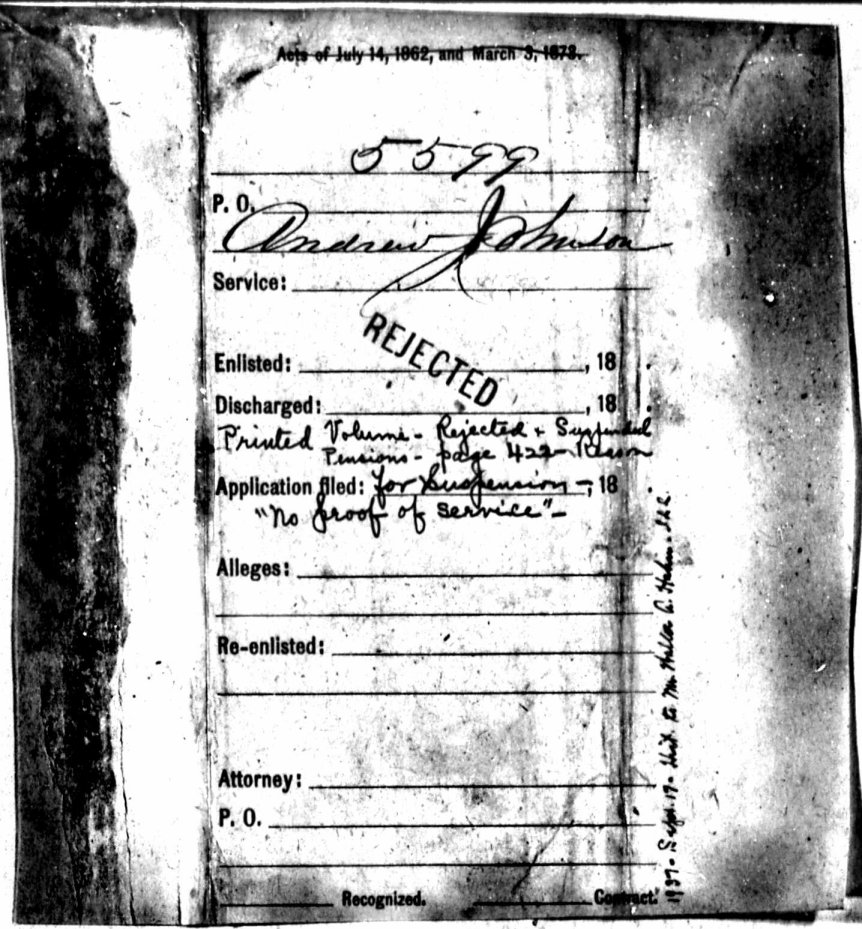 Acts of July 14, 1862, and March 3, 1873.
5599
P. O.
Andrew Johnson
Service:
REJECTED
Enlisted: , 18 .
Discharged: , 18 .
Printed Volume - Rejected + Suspended
Pensions - page 422 - Reason
Application filed: for Suspension - , 18
"no proof of service" -
Alleges:
Re-enlisted:
Attorney:
P. O.
Recognized. Contract.
1937 - Sept. 17 - Hist. to Mr.